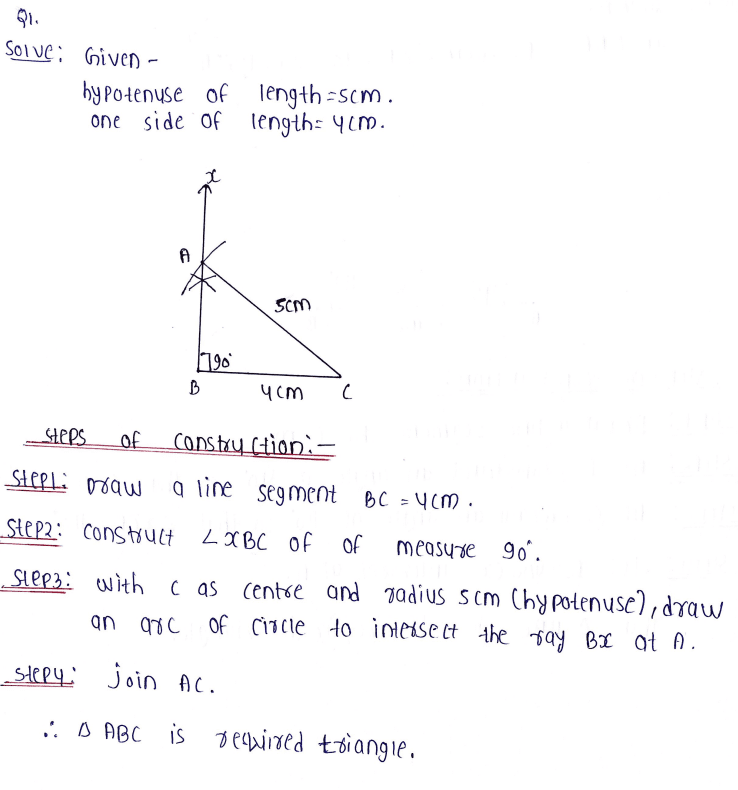 Q1.
Solve: Given -
hypotenuse of length = 5cm.
one side of length = 4cm.
x
A
5cm
90°
B
4cm
C
Steps of construction:-
Step1: Draw a line segment BC = 4cm.
Step2: construct ∠XBC of of measure 90°.
Step3: with C as centre and radius 5cm (hypotenuse), draw
an arc of circle to intersect the ray Bx at A.
Step4: join AC.
∴ Δ ABC is required triangle.